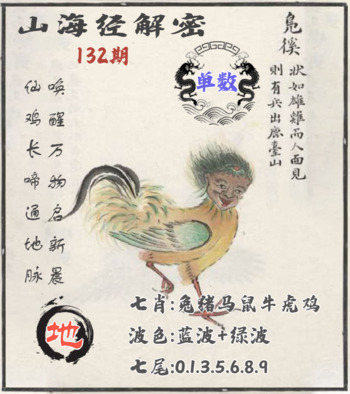 山海经解密
132期
单数
凫徯
状如雄雞而人面見
則有兵出鹿臺山
唤醒万物启新晨
仙鸡长啼通地脉
地
七肖:兔猪马鼠牛虎鸡
波色:蓝波+绿波
七尾:0.1.3.5.6.8.9